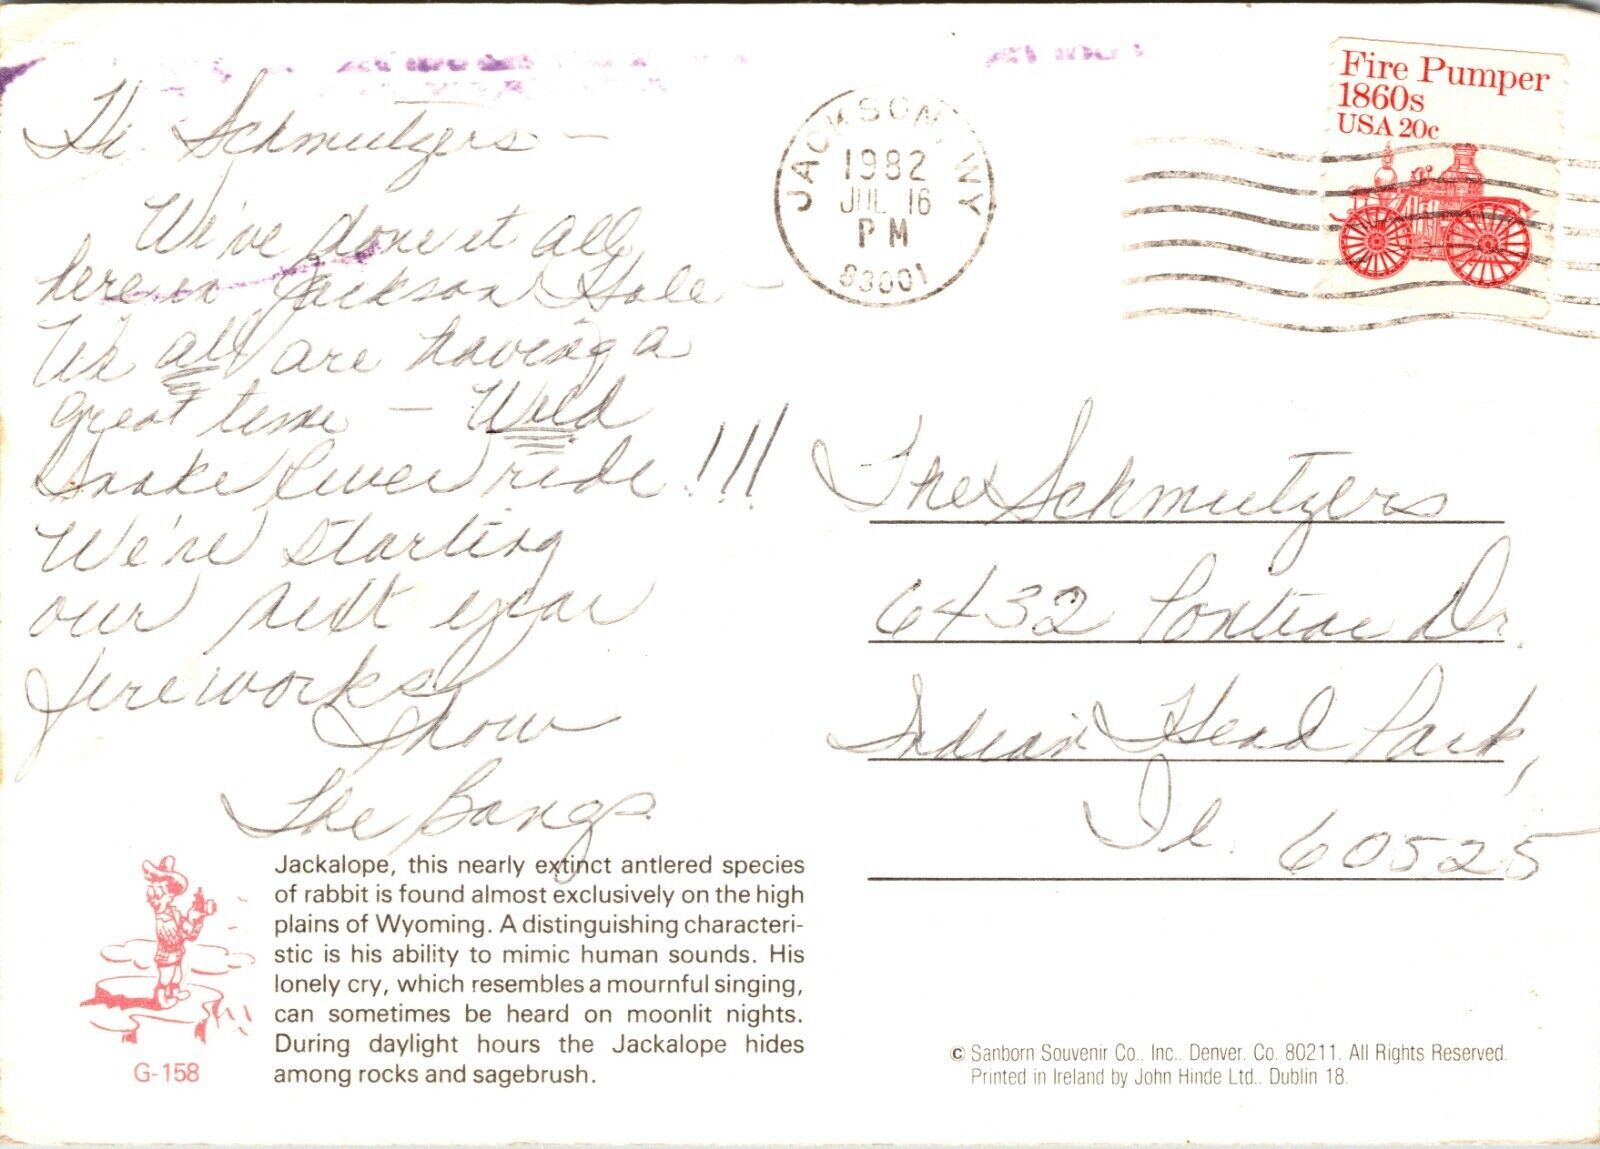 Hi Schmutzers —
We've done it all
here in Jackson Hole —
We all are having a
great time — Wild
Snake River ride !!!
We're starting
our next year
fireworks
show
The Bangs
Fire Pumper
1860s
USA 20c
JACKSON, WY
1982
JUL 16
PM
83001
The Schmutzers
6432 Pontiac Dr.
Indian Head Park,
Il. 60525
Jackalope, this nearly extinct antlered species
of rabbit is found almost exclusively on the high
plains of Wyoming. A distinguishing characteri-
stic is his ability to mimic human sounds. His
lonely cry, which resembles a mournful singing,
can sometimes be heard on moonlit nights.
During daylight hours the Jackalope hides
among rocks and sagebrush.
G-158
© Sanborn Souvenir Co., Inc., Denver, Co. 80211. All Rights Reserved.
Printed in Ireland by John Hinde Ltd., Dublin 18.